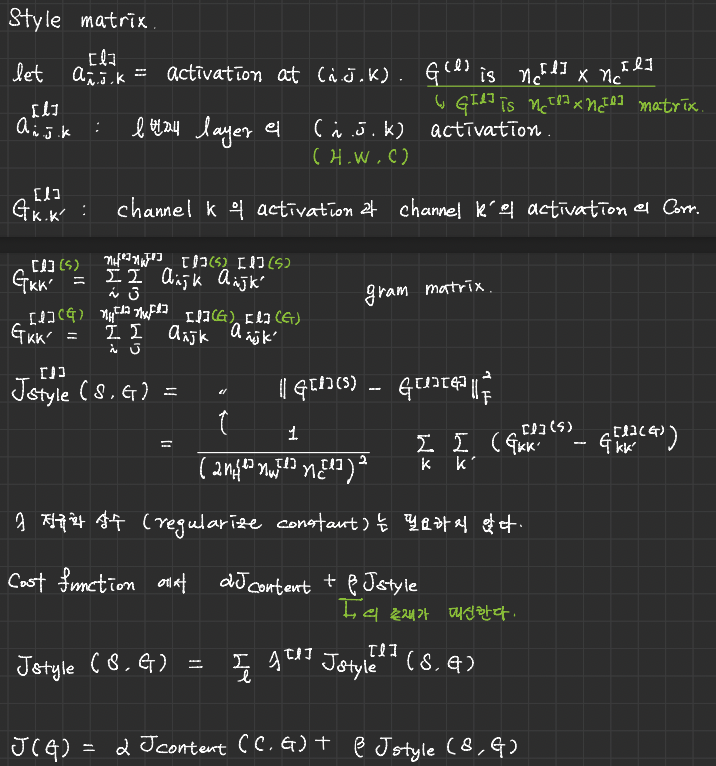 Style matrix.
let a_{i.j.k}^{[l]} = activation at (i.j.k). G^{(l)} is n_c^{[l]} × n_c^{[l]}
↳ G^{[l]} is n_c^{[l]} × n_c^{[l]} matrix.
a_{i.j.k}^{[l]} : l번째 layer의 (i.j.k) activation.
(H.W.C)
G_{K.K'}^{[l]} : channel k의 activation과 channel k'의 activation의 Corr.
G_{KK'}^{[l](S)} = Σ_i^{n_H^{[l]}} Σ_j^{n_W^{[l]}} a_{ijk}^{[l](S)} a_{ijk'}^{[l](S)} gram matrix.
G_{KK'}^{[l](G)} = Σ_i^{n_H^{[l]}} Σ_j^{n_W^{[l]}} a_{ijk}^{[l](G)} a_{ijk'}^{[l](G)}
J_{style}^{[l]} (S,G) = 〃 ‖G^{[l](S)} - G^{[l][G]}‖_F^2
= 1 / (2n_H^{[l]} n_W^{[l]} n_C^{[l]})^2 Σ_k Σ_{k'} (G_{KK'}^{[l](S)} - G_{kk'}^{[l](G)})
λ 정규화 상수 (regularize constant)는 필요하지 않다.
Cost function 에서 αJ_{content} + βJ_{style}
의 존재가 대신한다.
J_{style} (S,G) = Σ_l λ^{[l]} J_{style}^{[l]} (S,G)
J(G) = α J_{content} (C,G) + β J_{style} (S,G)